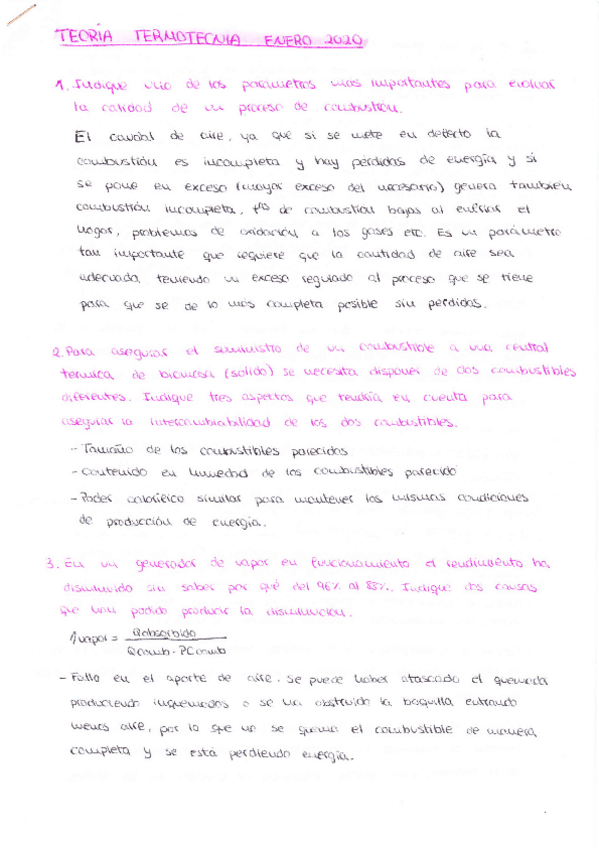 TEORÍA TERMOTECNIA ENERO 2020
1. Indique uno de los parámetros más importantes para evaluar
la calidad de un proceso de combustión.
El caudal de aire, ya que si se mete en defecto la
combustión es incompleta y hay pérdidas de energía y si
se pone en exceso (mayor exceso del necesario) genera también
combustión incompleta, tªs de combustión bajas al enfriar el
hogar, problemas de oxidación a los gases etc. Es un parámetro
tan importante que requiere que la cantidad de aire sea
adecuada, teniendo un exceso regulado al proceso que se tiene
para que se de lo más completa posible sin perdidas.
2. Para asegurar el suministro de un combustible a una central
térmica de biomasa (solido) se necesita disponer de dos combustibles
diferentes. Indique tres aspectos que tendría en cuenta para
asegurar la intercambiabilidad de los dos combustibles.
- Tamaño de los combustibles parecidos
- Contenido en humedad de los combustibles parecido
- Poder calorífico similar para mantener las mismas condiciones
de producción de energía.
3. En un generador de vapor en funcionamiento el rendimiento ha
disminuido sin saber por qué del 96% al 85%. Indique dos causas
que han podido producir la disminución.
ηvapor = Qabsorbido
Qcomb · PCcomb
- Fallo en el aporte de aire. Se puede haber atascado el quemador
produciendo inquemados o se ha obstruido la boquilla entrando
menos aire, por lo que no se quema el combustible de manera
completa y se está perdiendo energía.